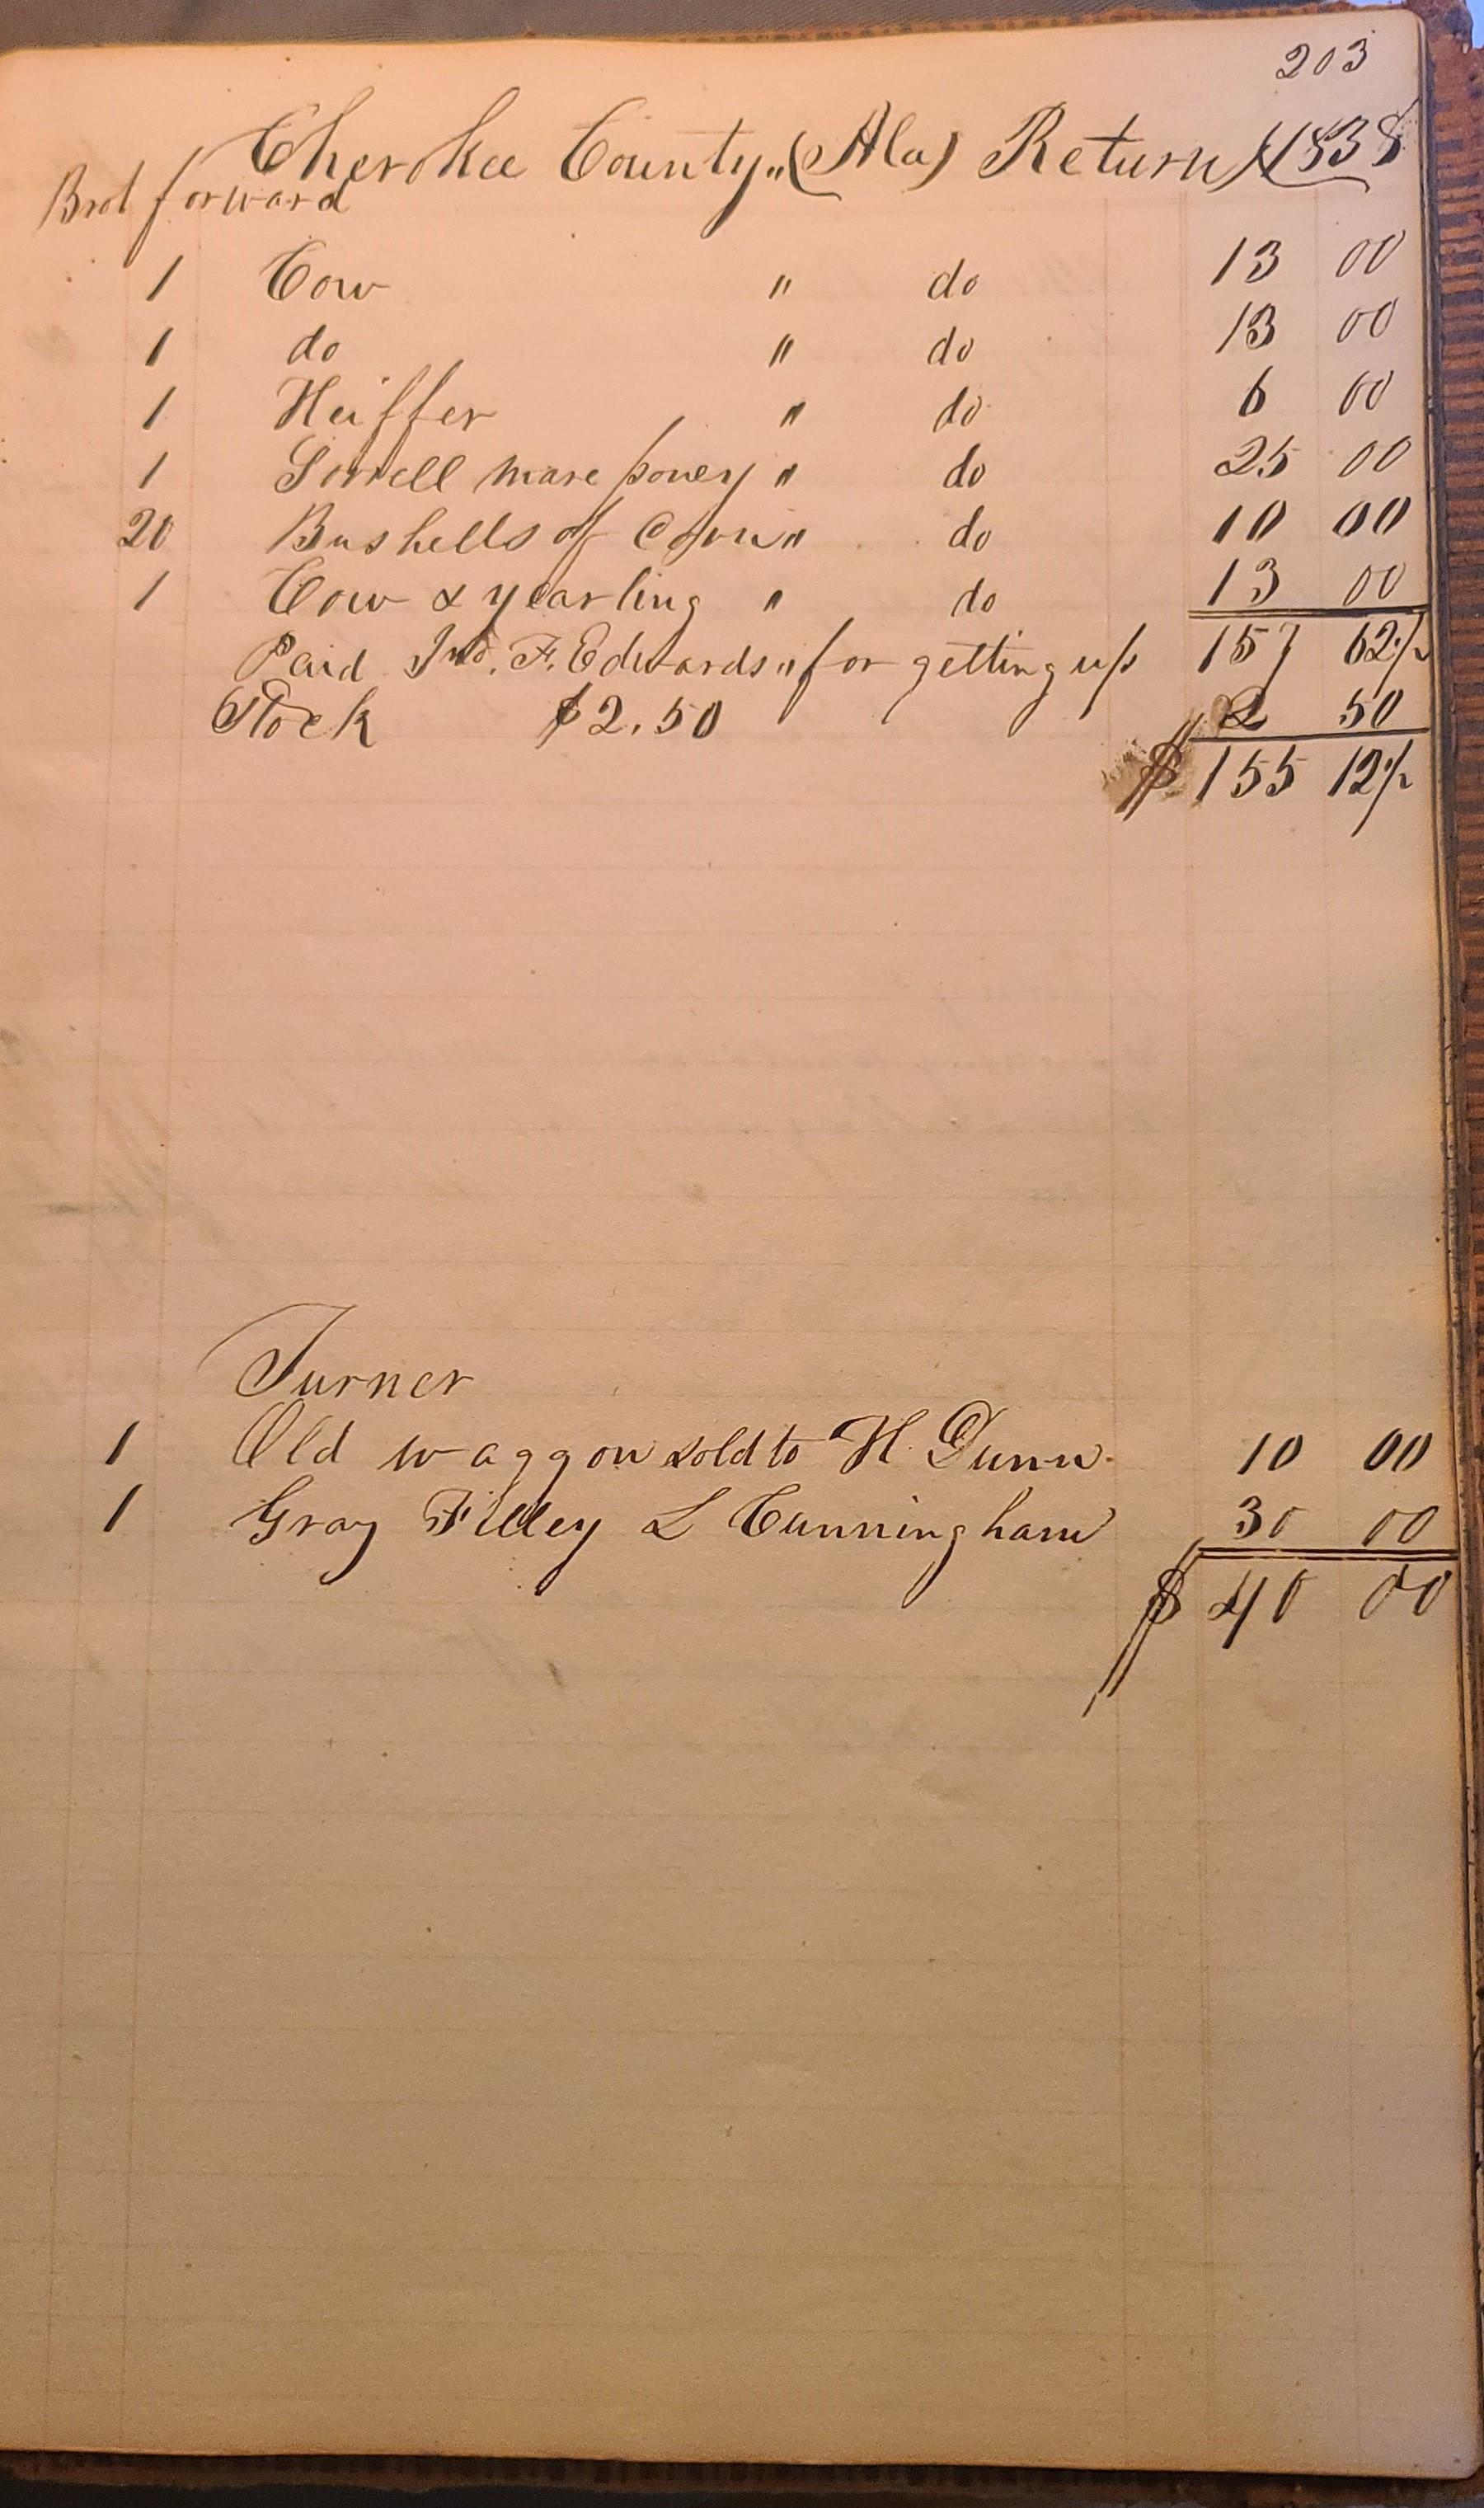 203
Cherokee County„ (Ala) Return 1838
Brot forward
1 Cow " do 13 00
1 do " do 13 00
1 Heiffer " do 6 00
1 Sorrell mare poney " do 25 00
20 Bushells of Corn " do 10 00
1 Cow & yearling " do 13 00
Paid Jno. F. Edwards " for getting up 157 62½
Stock $2.50 2 50
$ 155 12½
Turner
1 Old waggon sold to H. Dunn. 10 00
1 Gray Filley L Cunningham 30 00
$ 40 00